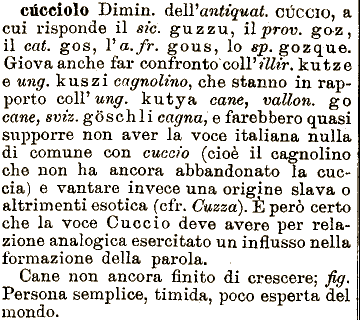 cúcciolo Dimin. dell'antiquat. CÚCCIO, a
cui risponde il sic. guzzu, il prov. goz,
il cat. gos, l'a. fr. gous, lo sp. gozque.
Giova anche far confronto coll'illir. kutze
e ung. kuszi cagnolino, che stanno in rap-
porto coll' ung. kutya cane, vallon. go
cane, sviz. göschli cagna, e farebbero quasi
supporre non aver la voce italiana nulla
di comune con cuccio (cioè il cagnolino
che non ha ancora abbandonato la cuc-
cia) e vantare invece una origine slava o
altrimenti esotica (cfr. Cuzza). È però certo
che la voce Cuccio deve avere per rela-
zione analogica esercitato un influsso nella
formazione della parola.
Cane non ancora finito di crescere; fig.
Persona semplice, timida, poco esperta del
mondo.